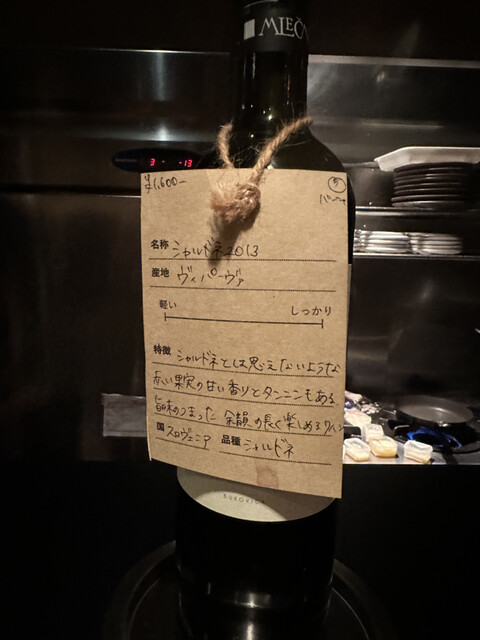 MLEČN
3 -13
¥1,600-
名称 シャルドネ2013
産地 ヴィパーヴァ
軽い しっかり
特徴 シャルドネとは思えないような
赤い果実の甘い香りとタンニンもある
旨味のつまった 余韻の長く楽しめるワイン
国 スロヴェニア 品種 シャルドネ
BUKOVICA